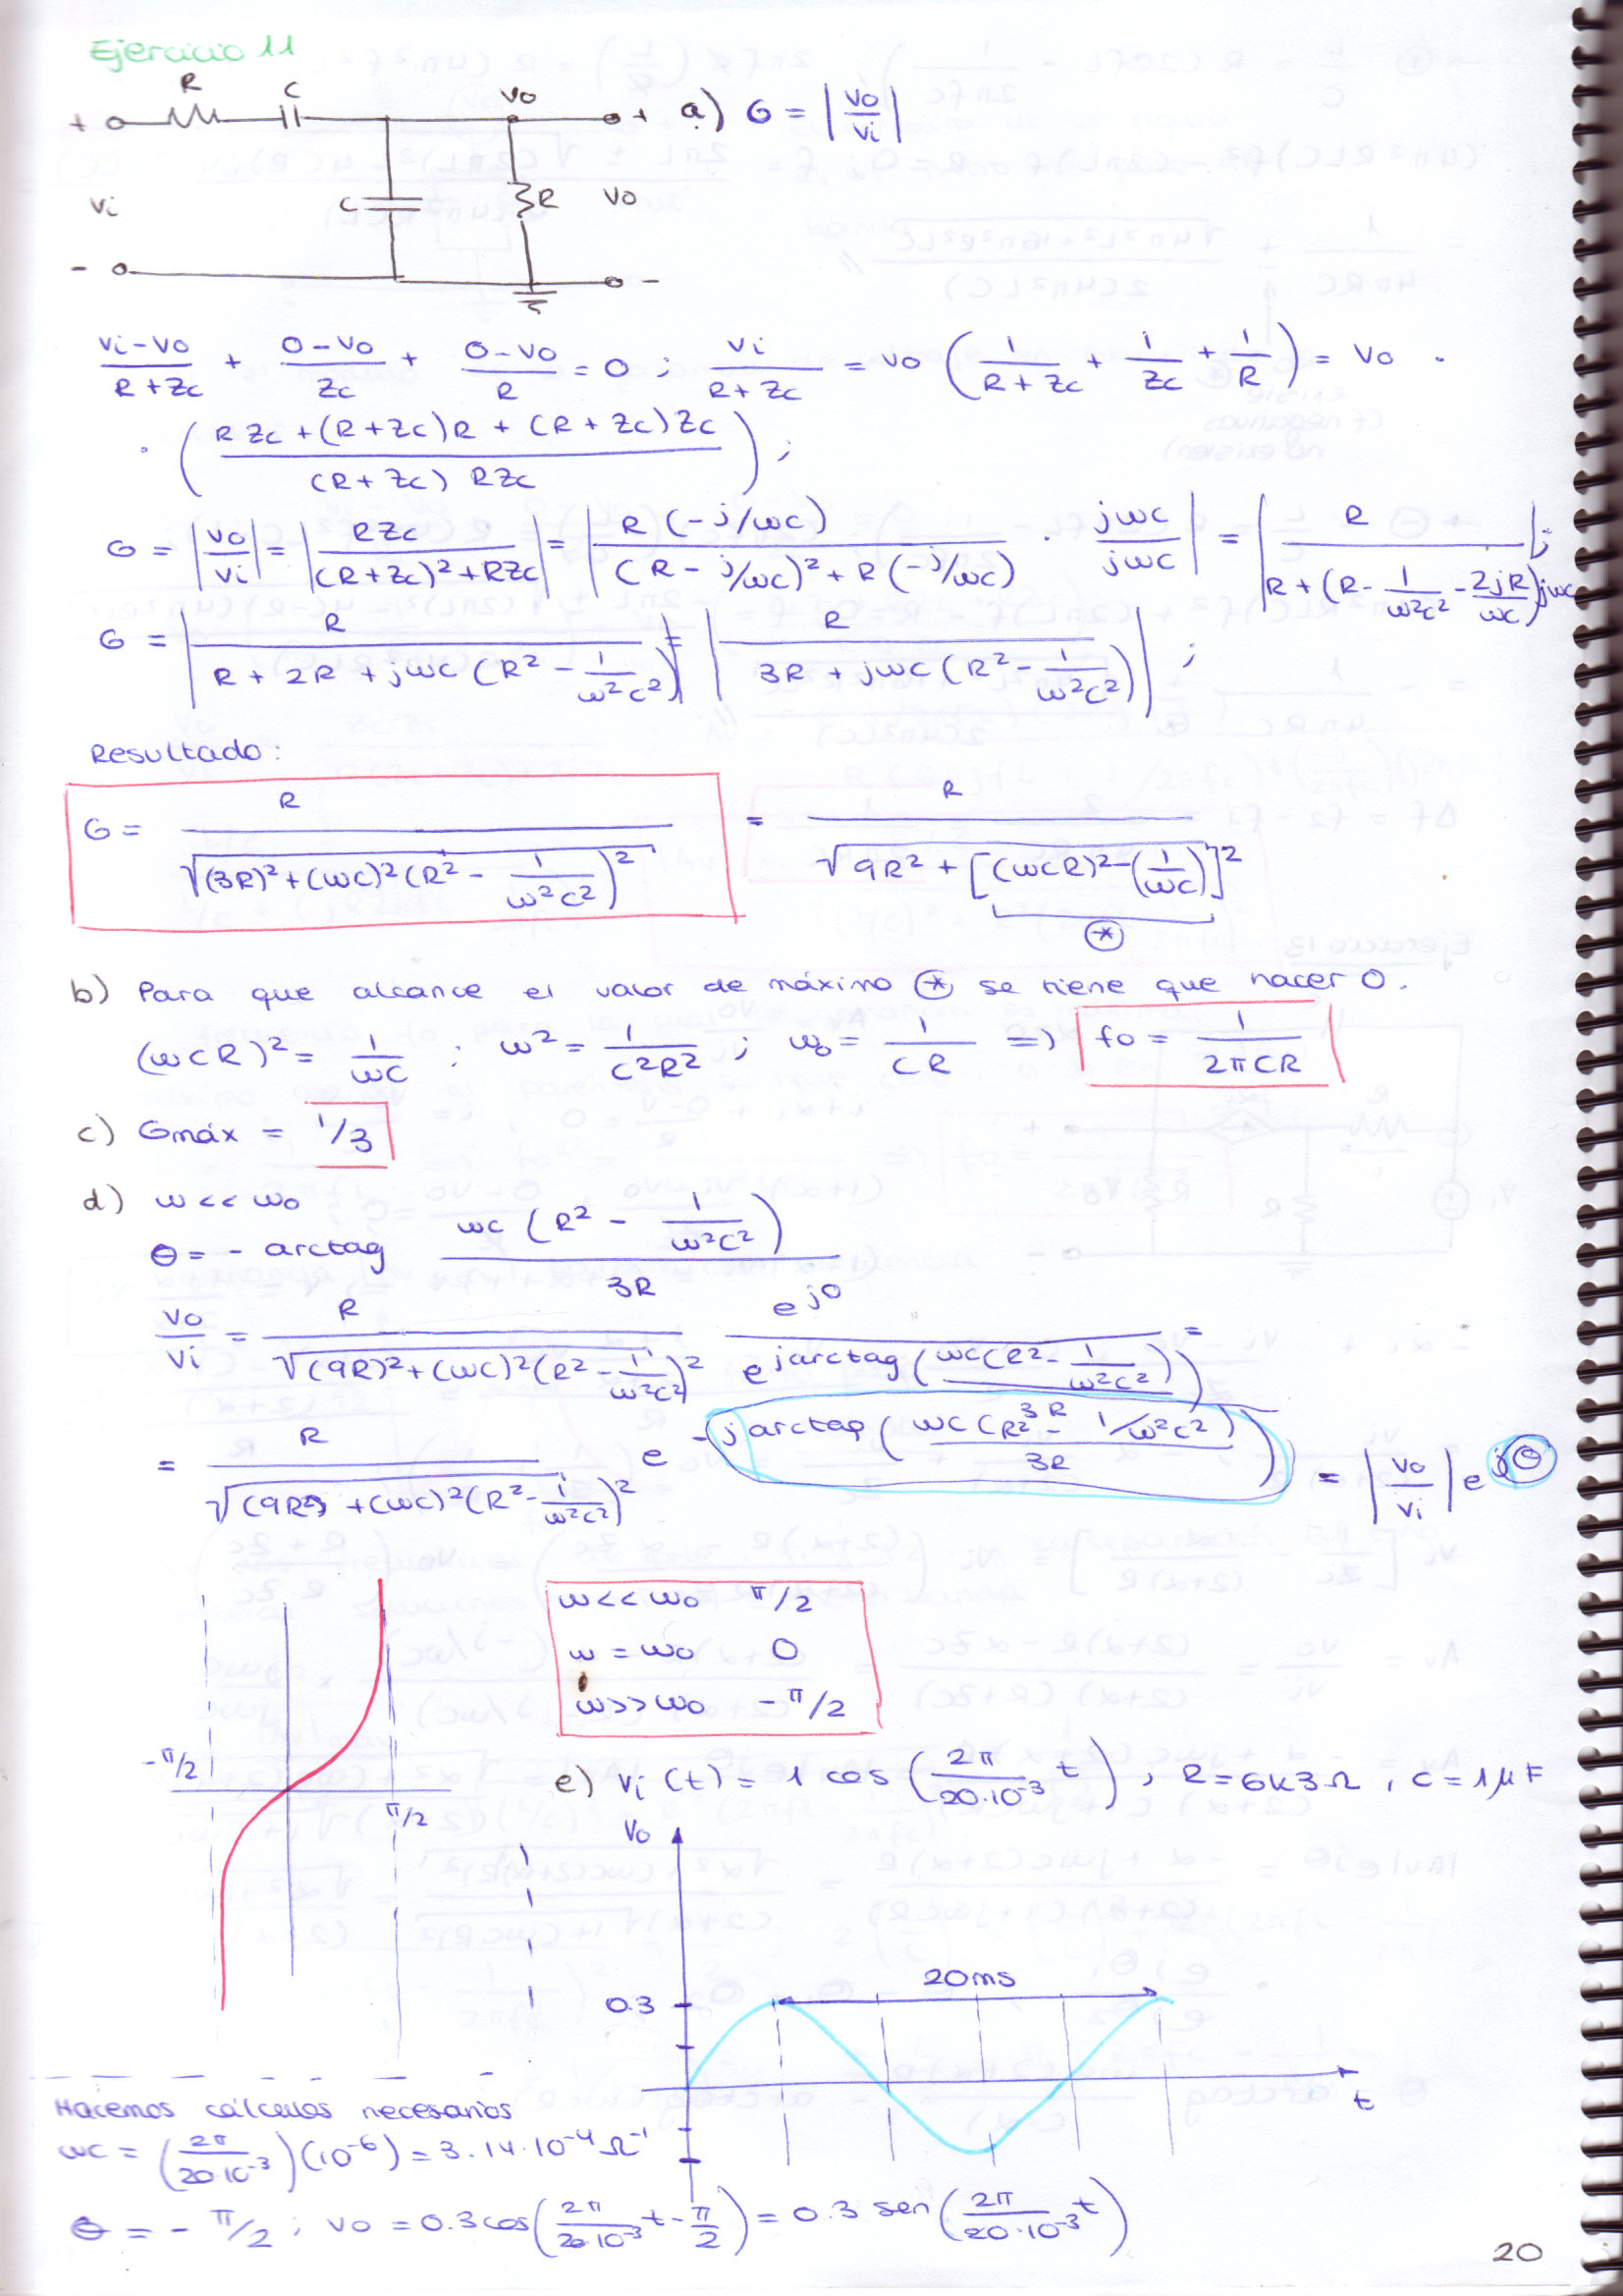 Ejercicio 11
R C Vo
+ + a) G = |Vo/Vi|
Vi C R Vo
- -
(Vi-Vo)/(R+Zc) + (0-Vo)/Zc + (0-Vo)/R = 0 ; Vi/(R+Zc) = Vo (1/(R+Zc) + 1/Zc + 1/R) = Vo ·
· ((RZc + (R+Zc)R + (R+Zc)Zc)/((R+Zc) RZc)) ;
G = |Vo/Vi| = |RZc/((R+Zc)²+RZc)| = |R(-j/ωc)/((R-j/ωc)²+R(-j/ωc)) · jωc/jωc| = |R/(R+(R-1/ω²c²-2jR/ωc)jωc)| ;
G = |R/(R+2R+jωc(R²-1/ω²c²))| = |R/(3R+jωc(R²-1/ω²c²))| ;
Resultado:
G = R/√((3R)²+(ωc)²(R²-1/ω²c²)²) = R/√(9R²+[(ωcR)²-(1/ωc)]²)
(*)
b) Para que alcance el valor de máximo (*) se tiene que hacer 0.
(ωCR)² = 1/ωC ; ω² = 1/C²R² ; ω₀ = 1/CR => f₀ = 1/2πCR
c) Gmáx = 1/3
d) ω << ω₀
θ = - arctag ωc(R²-1/ω²c²)/3R
Vo/Vi = R/√((9R)²+(ωc)²(R²-1/ω²c²)²) e^j0/e^jarctag(ωc(R²-1/ω²c²)/3R) =
= R/√((9R²)+(ωc)²(R²-1/ω²c²)²) e^-jarctag(ωc(R²-1/ω²c²)/3R) = |Vo/Vi| e^jθ
ω<<ω₀ π/2
ω = ω₀ 0
ω>>ω₀ -π/2
-π/2 π/2
e) Vi(t) = 1 cos(2π/20·10⁻³ t) , R = 6k3Ω , C = 1µF
Vo
20ms
0.3
t
Hacemos cálculos necesarios
ωc = (2π/20·10⁻³)(10⁻⁶) = 3.14·10⁻⁴ Ω⁻¹
θ = - π/2 ; Vo = 0.3cos(2π/20·10⁻³ t - π/2) = 0.3 sen(2π/20·10⁻³ t)
20